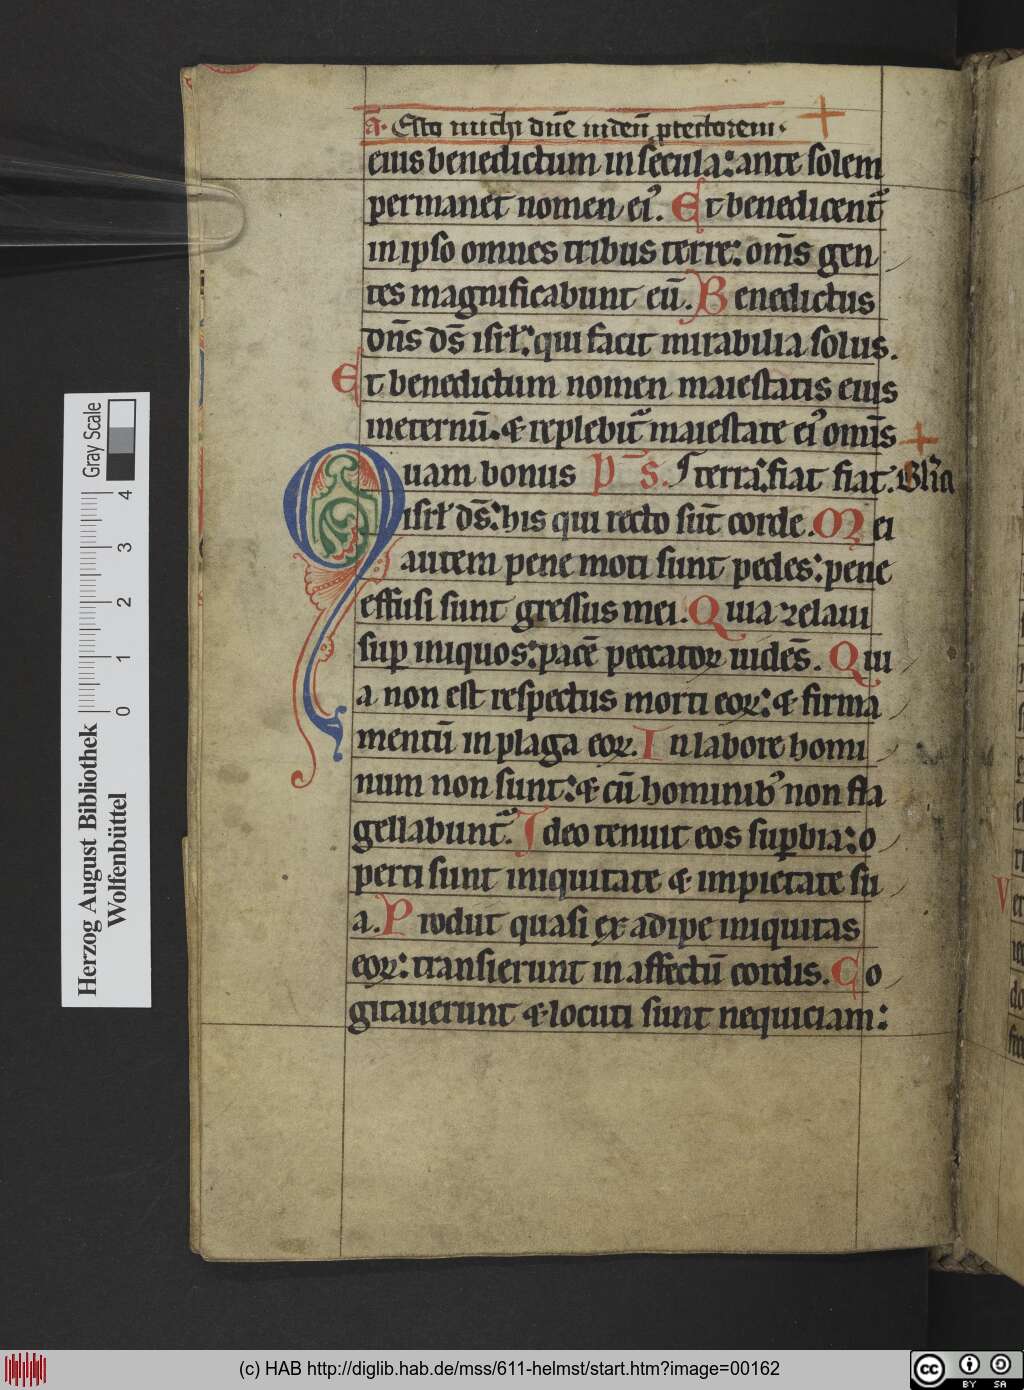 a. Esto michi dn̄e in deū ꝓtectorem.
eius benedictum in secula: ante solem
permanet nomen eiꝰ. Et benedicent᷑
in ipso omnes tribus terre: om̄s gen
tes magnificabunt eū. Benedictus
dn̄s ds̄ isrl̄: qui facit mirabilia solus.
Et benedictum nomen maiestatis eius
in eternū. & replebit᷑ maiestate eiꝰ omīs
Quam bonus Ps. terra: fiat fiat.
isrl̄ ds̄: his qui recto sūt corde. Mei
autem pene moti sunt pedes: pene
effusi sunt gressus mei. Quia zelaui
suꝑ iniquos: pacē peccatoꝝ uidēs. Qui
a non est respectus morti eoꝝ: & firma
mentū in plaga eoꝝ. In labore homi
num non sunt: & cū hominibꝰ non fla
gellabunt᷑. Ideo tenuit eos suꝑbia: o
perti sunt iniquitate & impietate su
a. Prodiit quasi ex adipe iniquitas
eoꝝ: transierunt in affectū cordis. Co
gitauerunt & locuti sunt nequiciam:
Herzog August Bibliothek
Wolfenbüttel
Gray Scale
0 1 2 3 4
(c) HAB http://diglib.hab.de/mss/611-helmst/start.htm?image=00162
cc BY SA